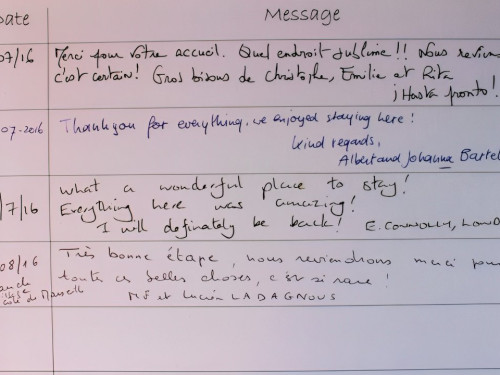 Date Message
07/16 Merci pour votre accueil. Quel endroit sublime!! Nous
c'est certain! Gros bisous de Christophe, Emilie et Rita
¡Hasta pronto!
07-2016 Thank you for everything, we enjoyed staying here!
kind regards,
Albert and Johanna
/7/16 What a wonderful place to stay!
Everything here was amazing!
I will definately be back! E. CONNOLLY,
08/16 Très bonne étape, nous reviendrons merci pour
toutes ces belles choses, c'est si rare!
de Marseille Me et Lucien LADAGNOUS